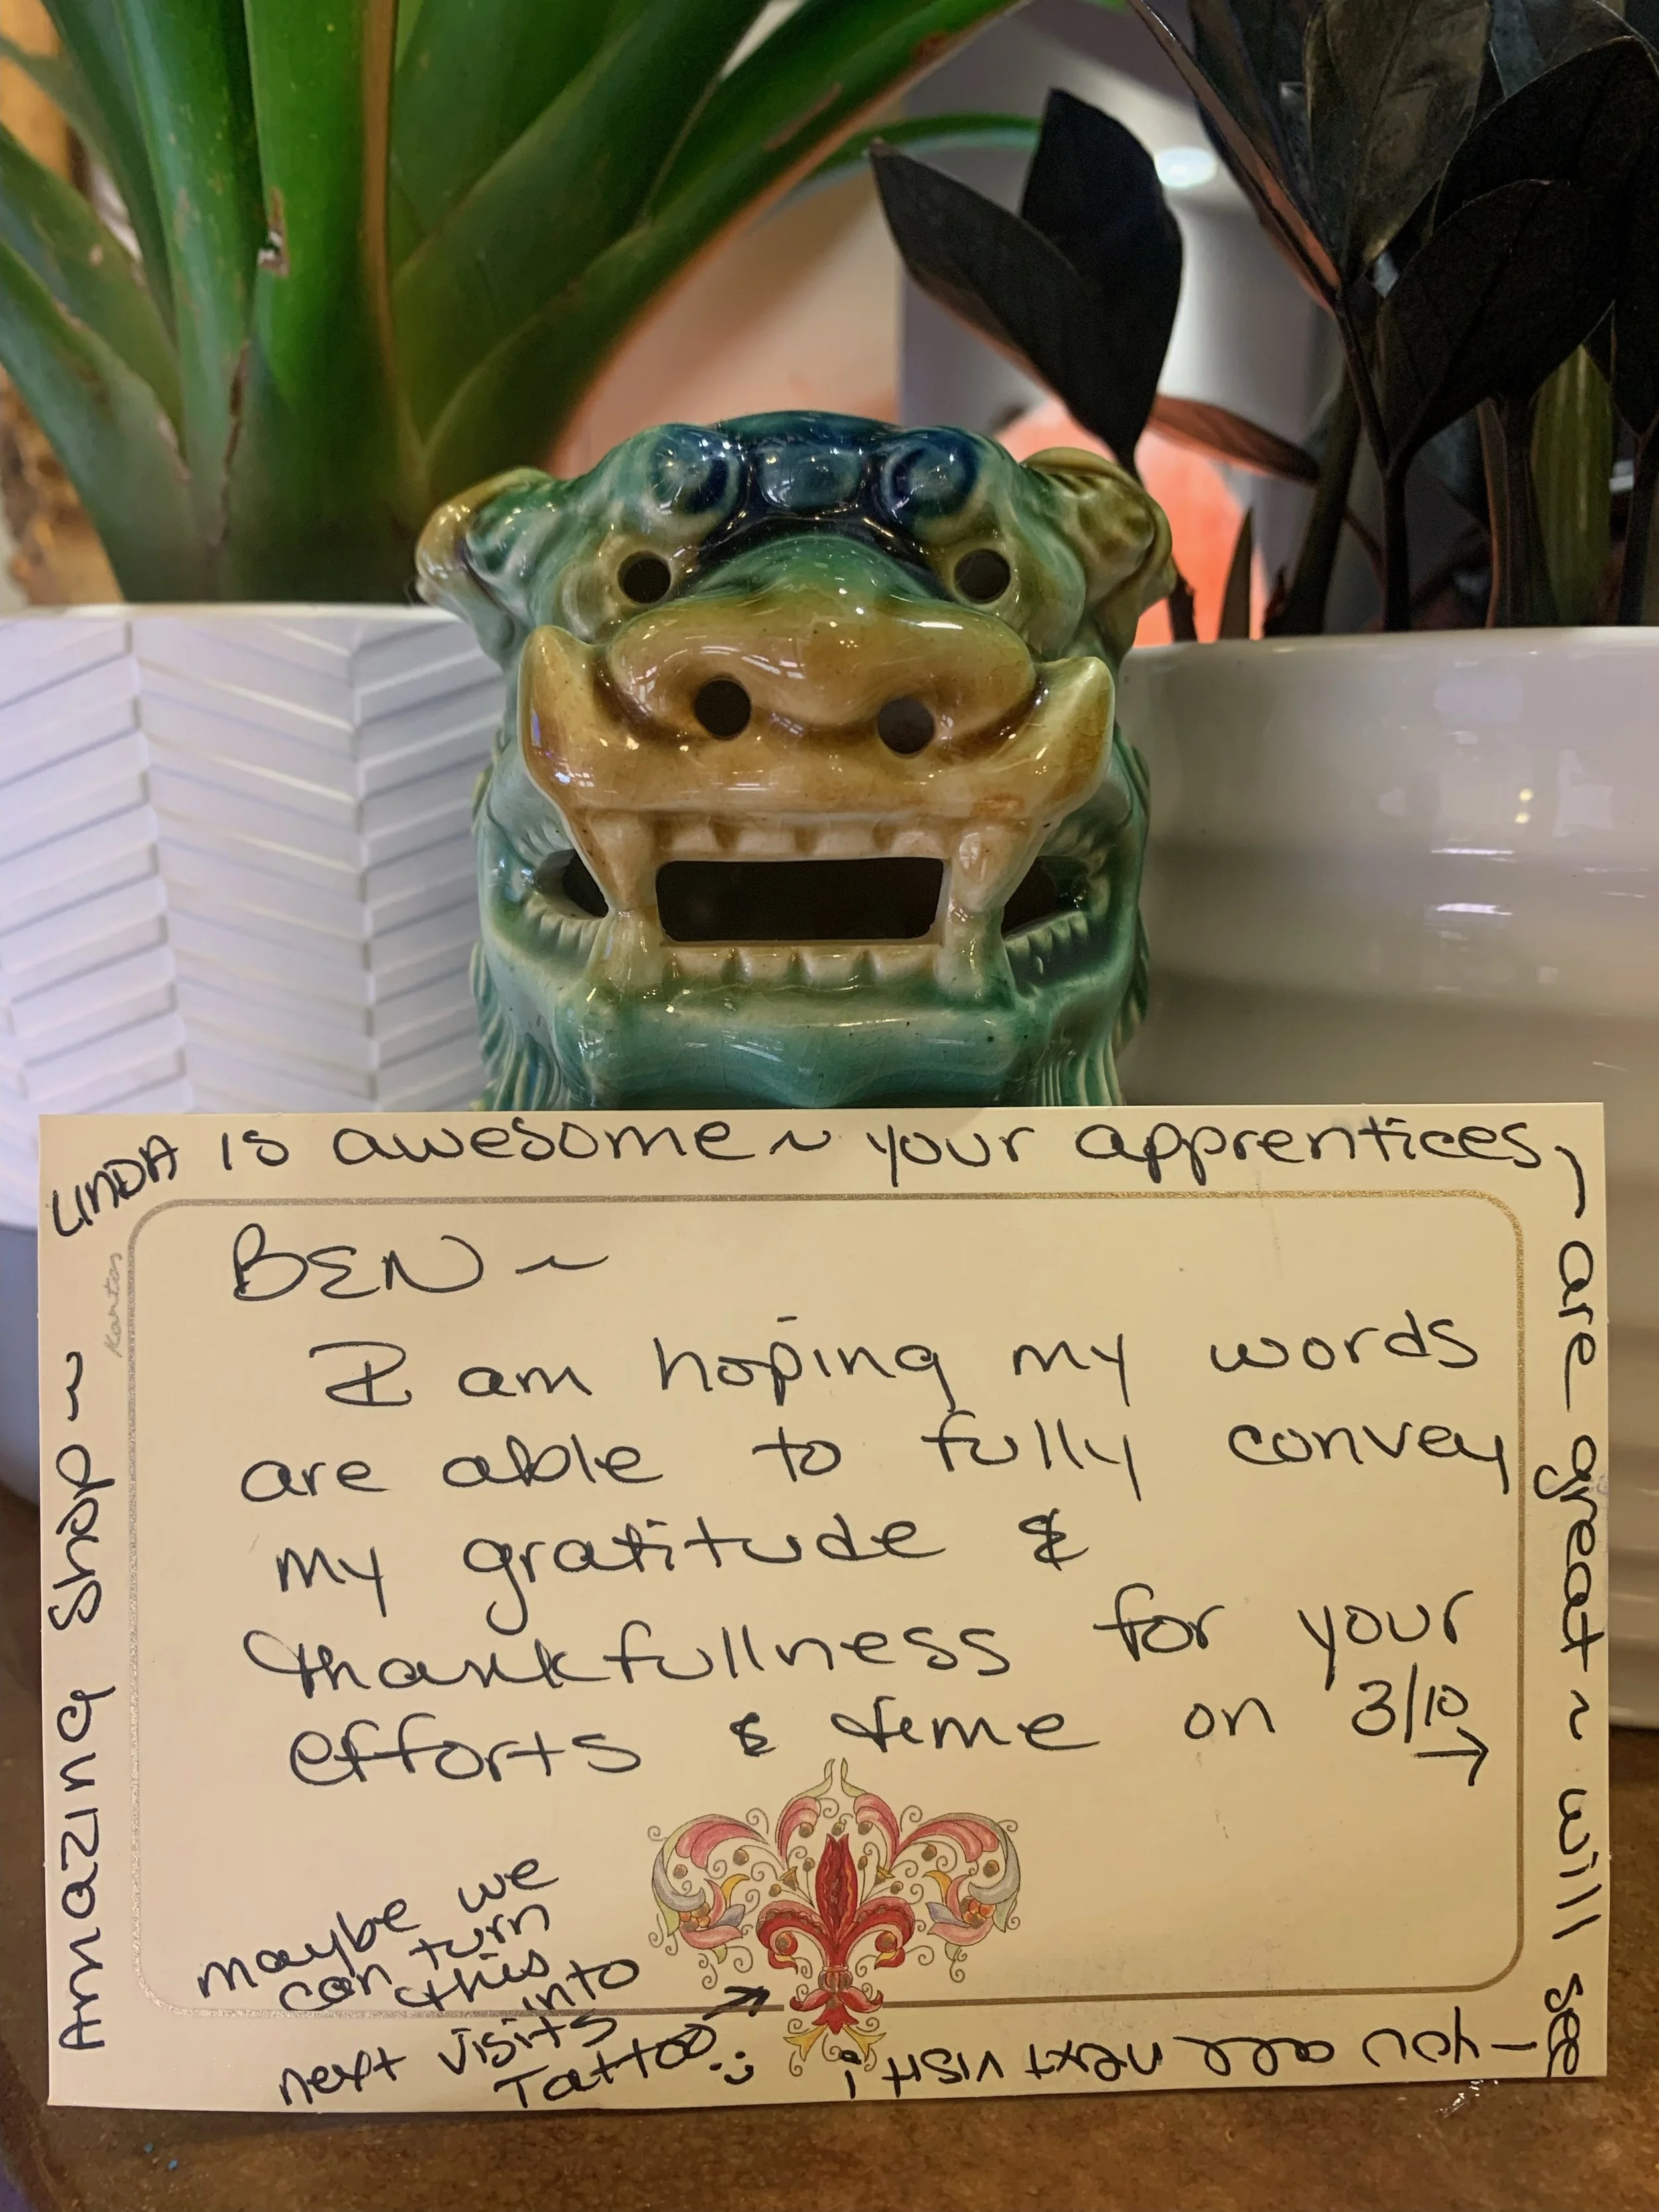 Amazing Shop ~
LINDA is awesome ~ your apprentices,
are great ~ will see
- you all next visit!
BEN ~
I am hoping my words
are able to fully convey
my gratitude &
thankfullness for your
efforts & time on 3/10
→
maybe we
can turn
this
into
next visits
Tattoo :)